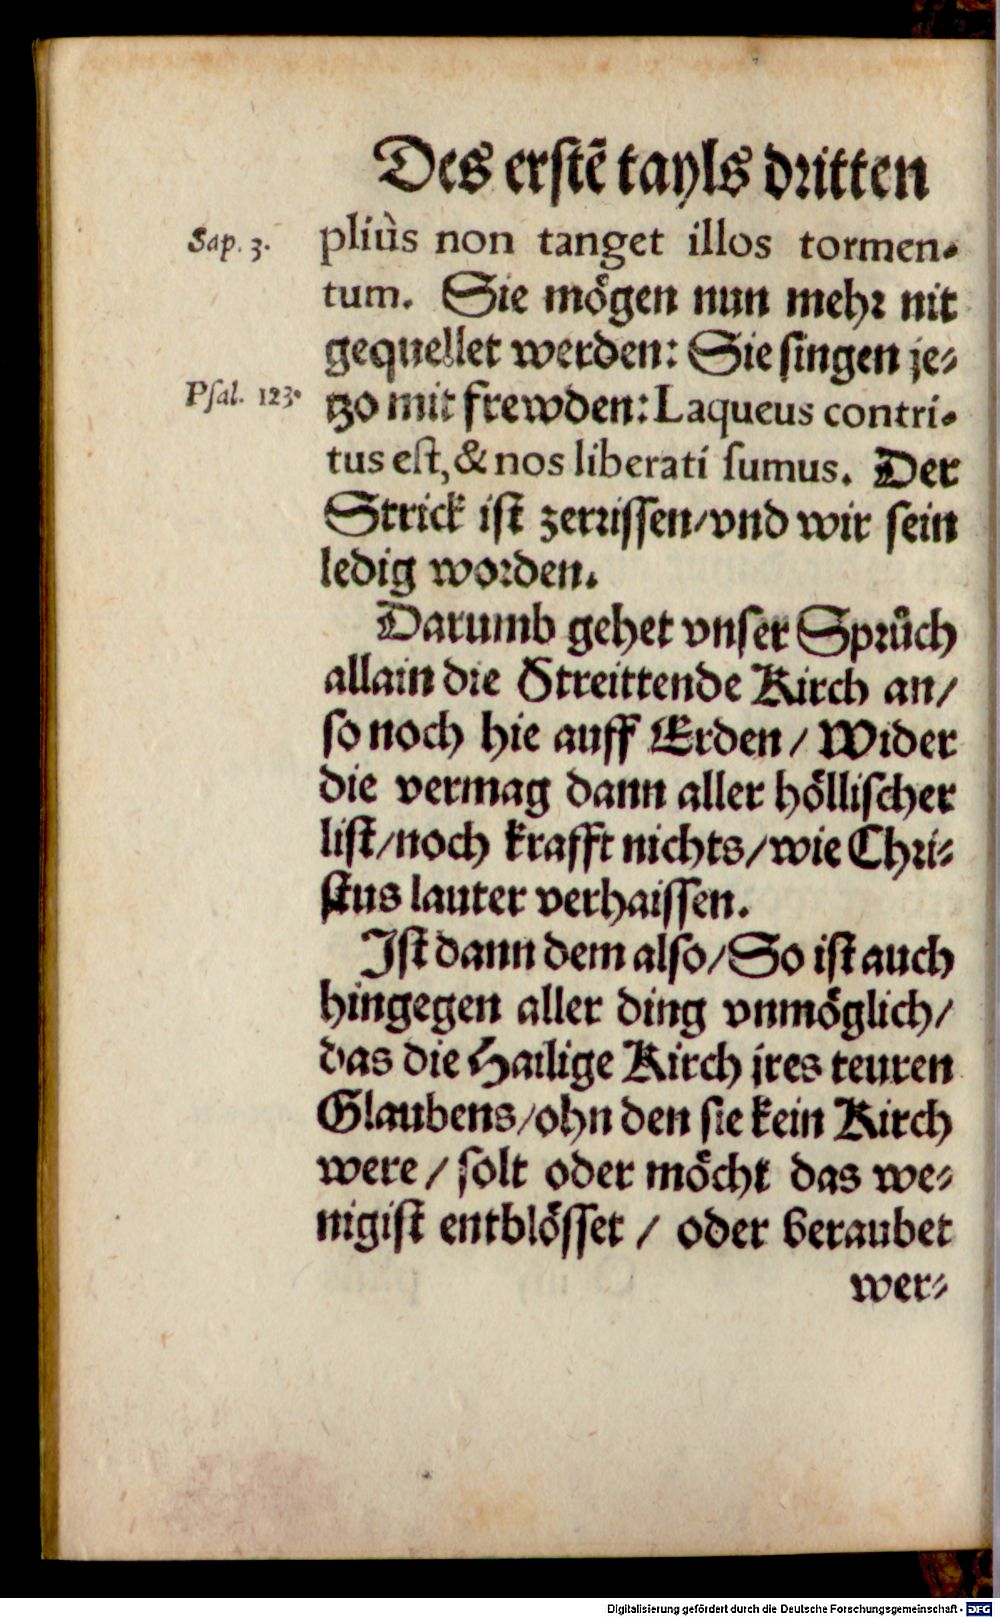 Des erstẽ tayls dritten
Sap. 3.
pliùs non tanget illos tormen-
tum. Sie mögen nun mehr nit
gequellet werden: Sie singen je-
Psal. 123.
tzo mit frewden: Laqueus contri-
tus est, & nos liberati sumus. Der
Strick ist zerrissen/ vnd wir sein
ledig worden.
Darumb gehet vnser Sprůch
allain die Streittende Kirch an/
so noch hie auff Erden / Wider
die vermag dann aller höllischer
list/ noch krafft nichts/ wie Chri-
stus lauter verhaissen.
Ist dann dem also/ So ist auch
hingegen aller ding vnmöglich/
das die Hailige Kirch jres teuren
Glaubens/ ohn den sie kein Kirch
were / solt oder möcht das we-
nigist entblösset / oder beraubet
wer-
Digitalisierung gefördert durch die Deutsche Forschungsgemeinschaft - DFG